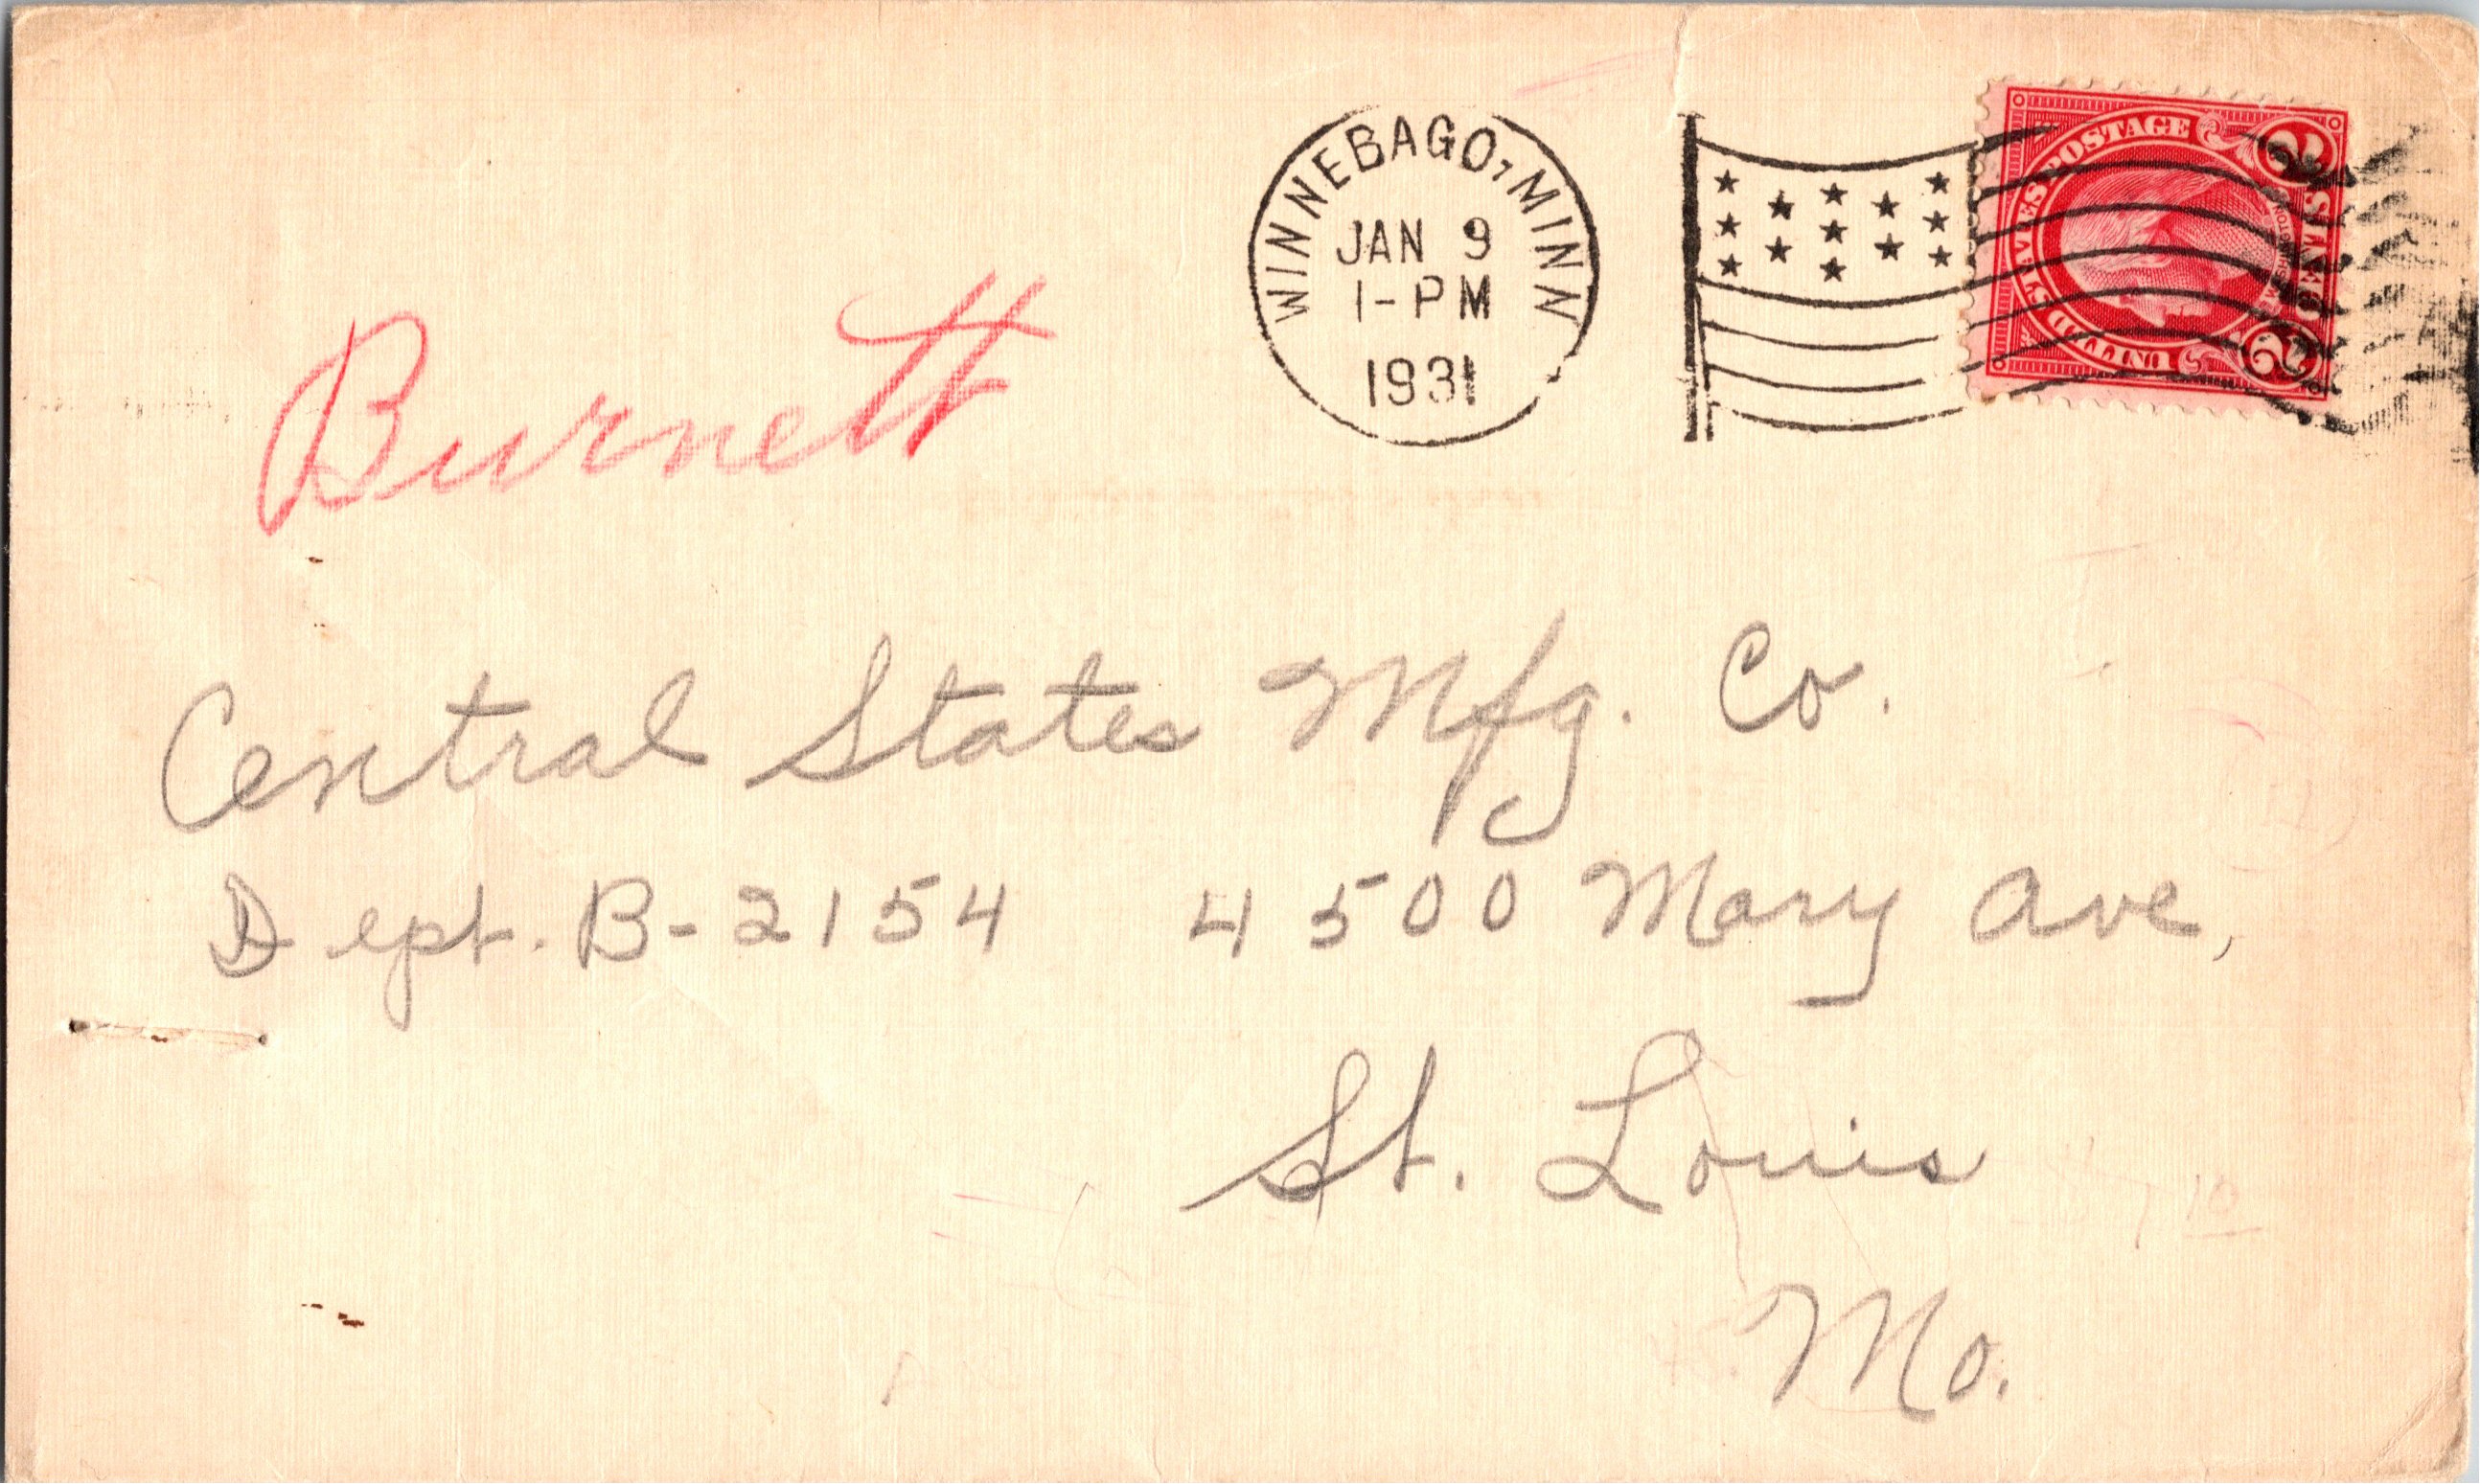 WINNEBAGO, MINN
JAN 9
1-PM
1931
UNITED STATES POSTAGE
WASHINGTON
2 CENTS 2
Burnett
Central States Mfg. Co.
Dept. B-2154 4500 Mary Ave,
St. Louis
Mo.